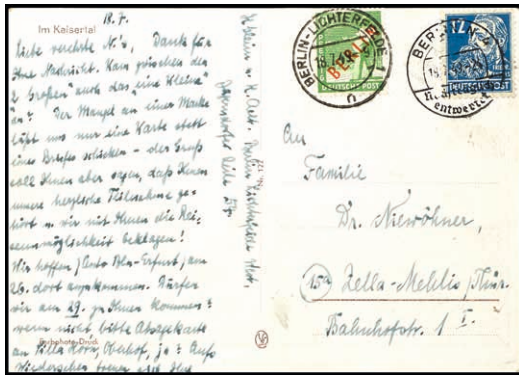 Im Kaisertal
18.7.
Liebe verehrte N's, Dank für
Ihre Nachricht. Kam zwischen den
2 Großen auch das eine Kleine
an? Der Mangel an einer Marke
läßt uns nur eine Karte statt
eines Briefes schicken - der Gruß
soll Ihnen aber sagen, daß Ihnen
unsere herzliche Teilnahme ge-
hört u. wir mit Ihnen die Rei-
seunmöglichkeit beklagen!
Wir hoffen, Auto Bln-Erfurt, am
26. dort anzukommen. Dürfen
wir am 29. zu Ihnen kommen?
wenn nicht, bitte Absagekarte
an Villa Dorn, Oberhof, ja? Aufs
Wiedersehen freuen sich Ihre
Photo-Druck
Berlin
BERLIN-LICHTERFELDE 1
BERLIN
DEUTSCHE POST
BERLIN N 4
12
entwertet
An
Familie
Dr. Niewöhner,
15a Zella-Mehlis/Thür.
Bahnhofstr. 1 I.